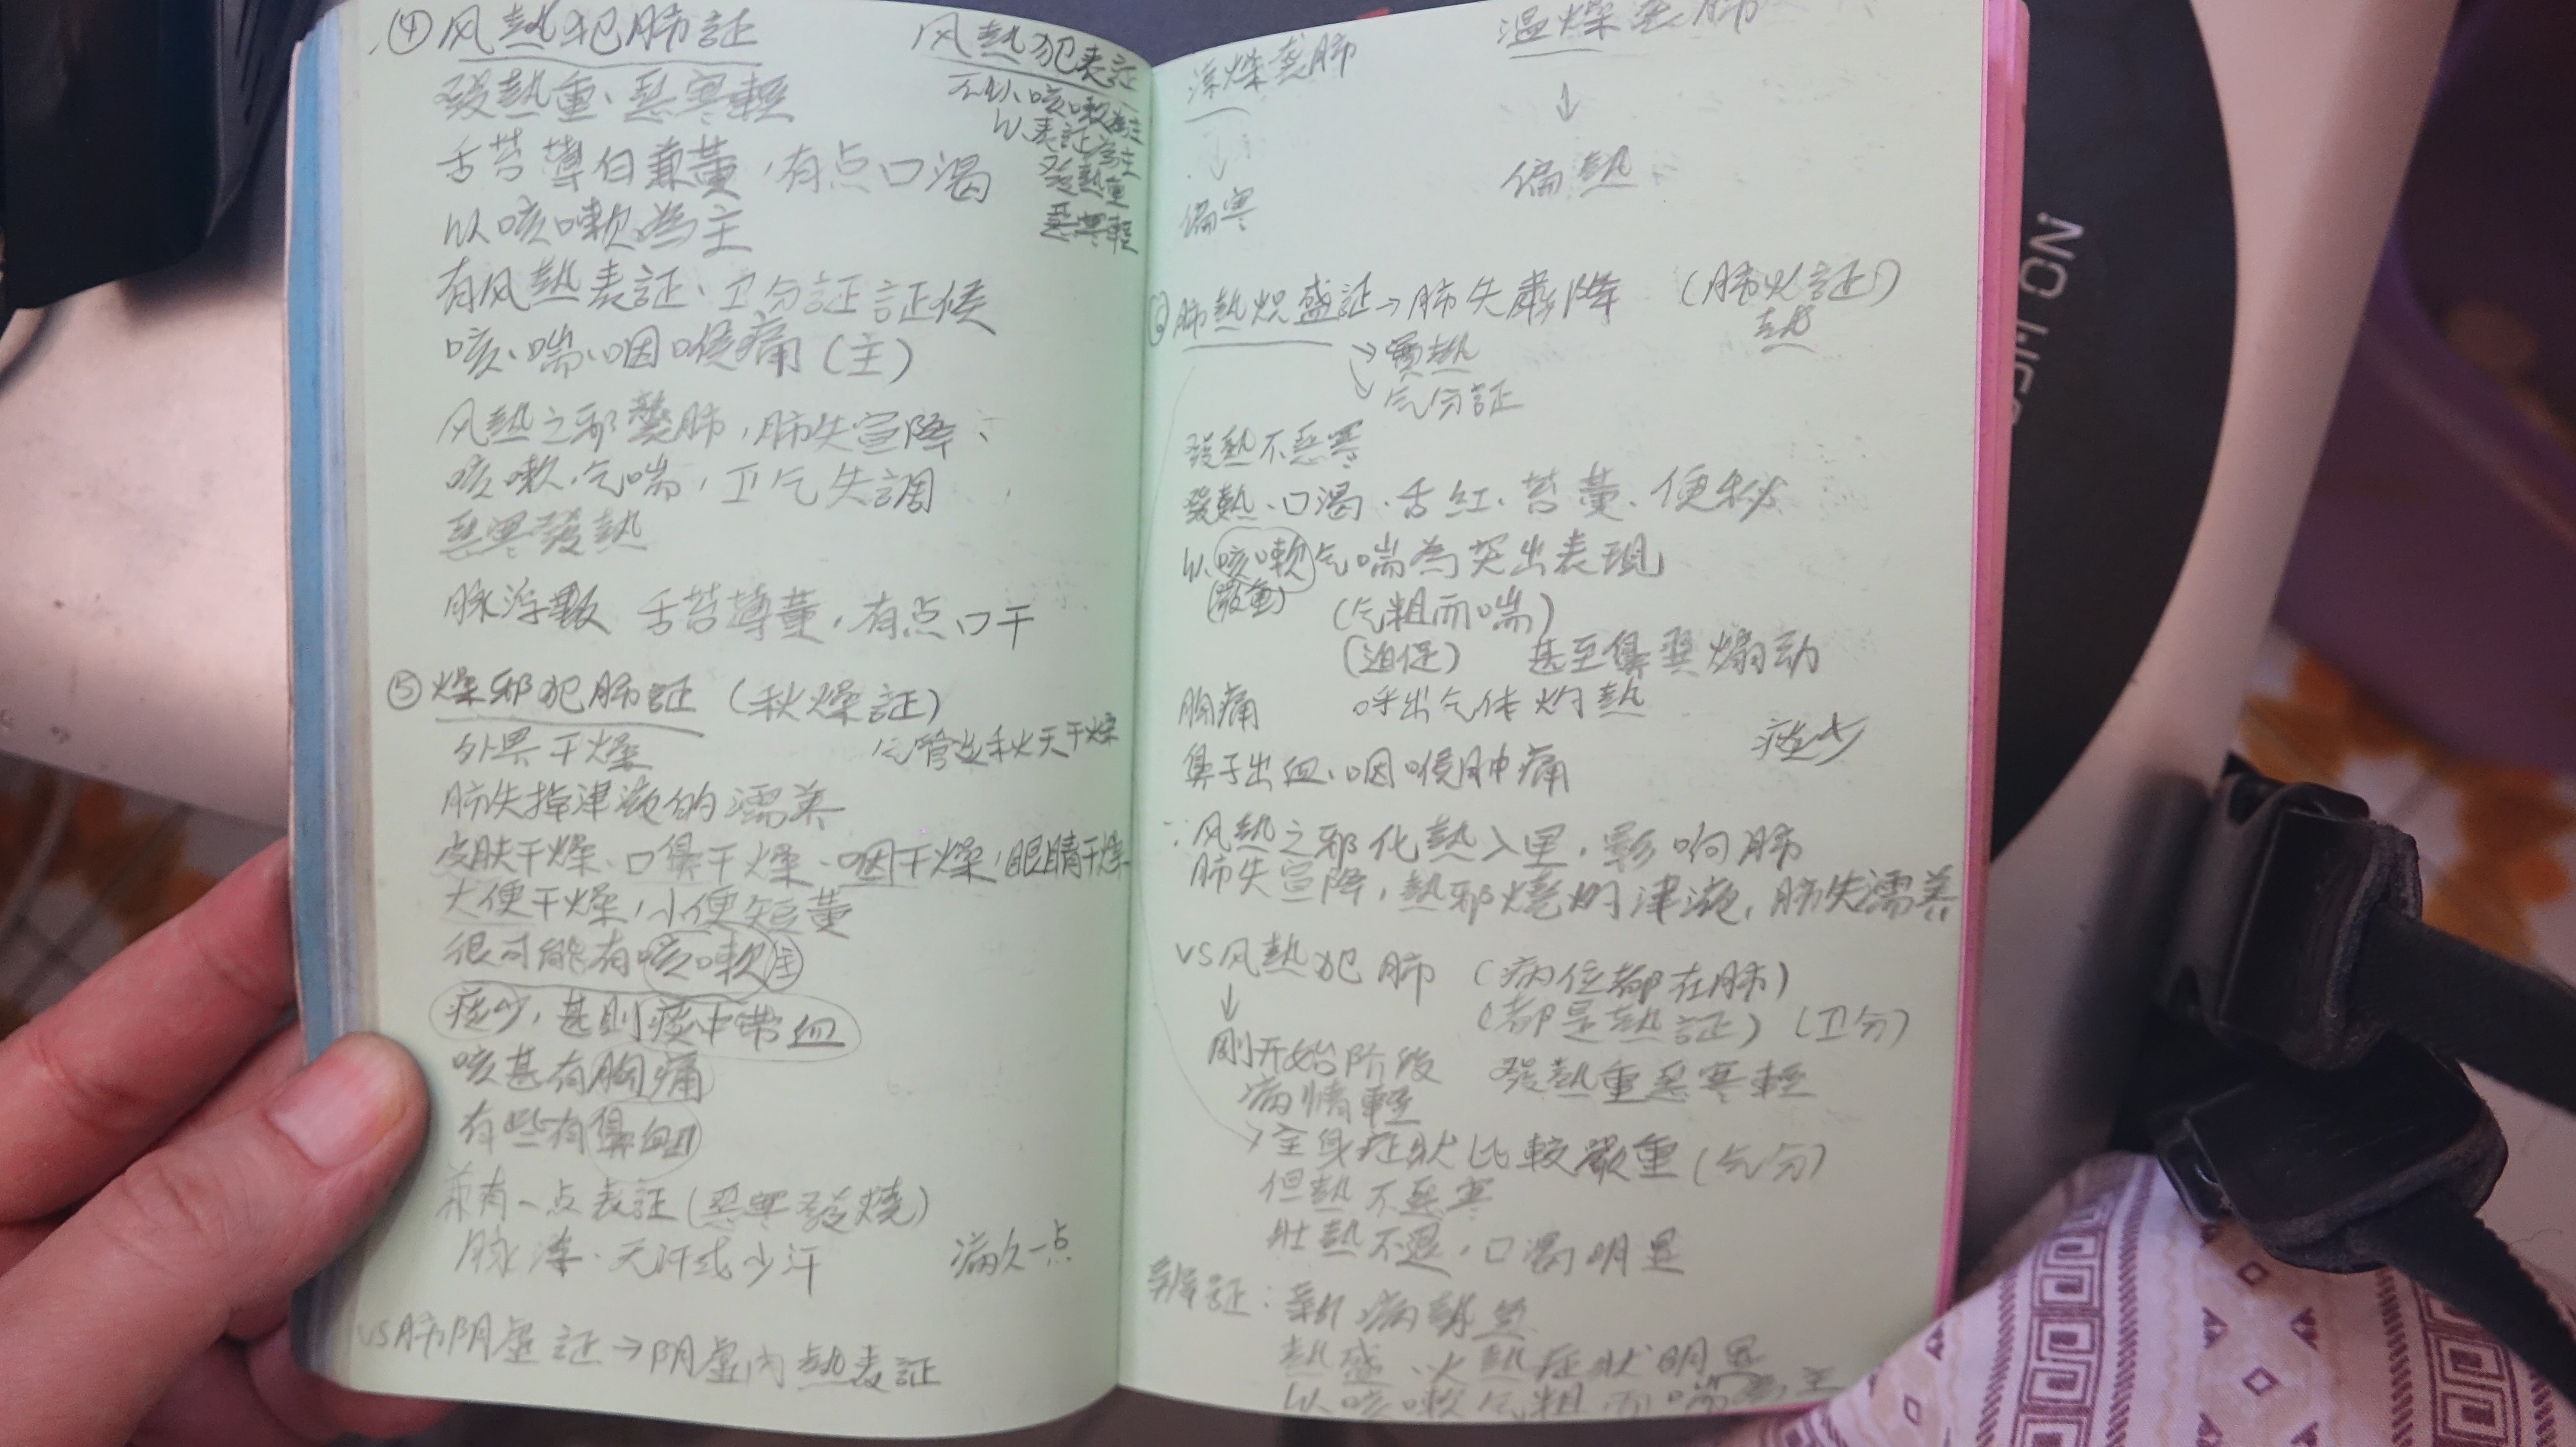 ④风熱犯肺証
發熱重、惡寒輕
舌苔薄白兼黃，有点口渴
以咳嗽為主
有风熱表証、卫分証証候
咳、喘、咽喉痛（主）
风熱之邪襲肺，肺失宣降∴
咳嗽，气喘，卫气失調
惡寒發熱
脉浮數 舌苔薄黃，有点口干
风熱犯表証
不以咳嗽為主
以表証為主
發熱重
惡寒輕
⑤燥邪犯肺証（秋燥証）
外界干燥
气管炎秋天干燥
肺失掉津液的濡养
皮肤干燥、口鼻干燥、咽干燥，眼睛干燥
大便干燥，小便短黃
很可能有咳嗽(主)
痰少，甚則痰中带血
咳甚有胸痛
有些有鼻血
兼有一点表証（惡寒發燒）
脉，无汗或少汗
病久一点
VS肺阴虛証→阴虛內熱表証
凉燥袭肺
↓
偏寒
温燥袭肺
↓
偏熱
⑥肺熱炽盛証→肺失肅降 （肺火証）
熱
→實熱
→气分証
發熱不惡寒
發熱、口渴、舌紅、苔黃、便秘
以咳嗽气喘為突出表現
（嚴重） （气粗而喘）
（迫促） 甚至鼻翼煽动
胸痛 呼出气体灼熱
痰少
鼻子出血、咽喉肿痛
∵风熱之邪化熱入里，影响肺
肺失宣降，熱邪燒灼津液，肺失濡养
VS风熱犯肺 （病位都在肺）
↓ （都是熱証）（卫分）
刚开始阶段 發熱重惡寒輕
病情輕
→全身症狀比較嚴重（气分）
但熱不惡寒
壮熱不退，口渴明显
辨証：新病熱
熱盛、火熱症狀明显
以咳嗽气粗而喘為主
NO